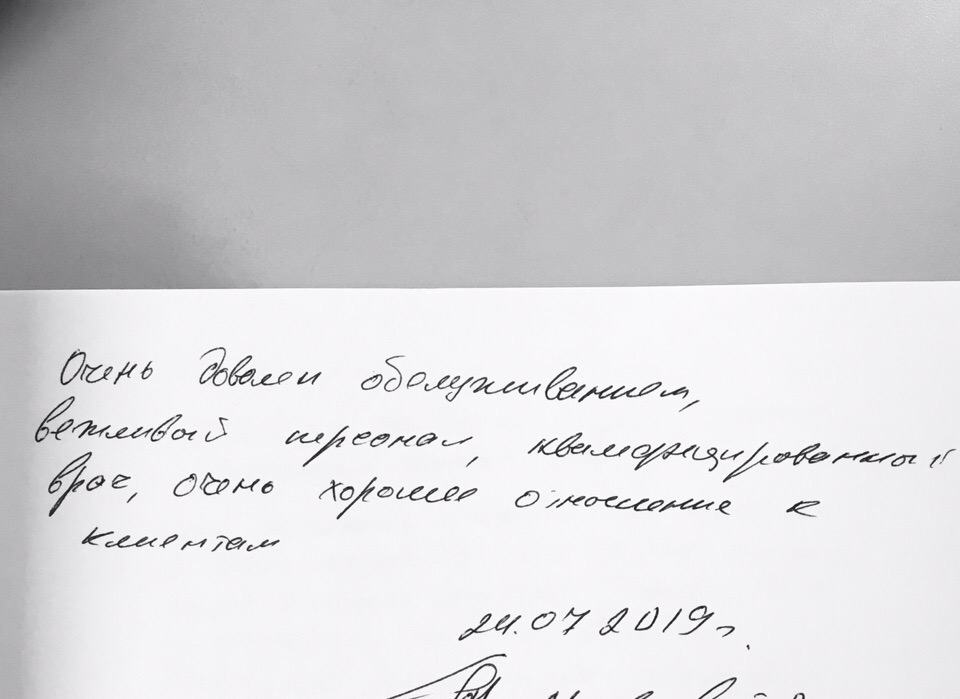 Очень доволен обслуживанием,
вежливый персонал, квалифицированный
врач, очень хорошее отношение к
клиентам
24.07 2019г.